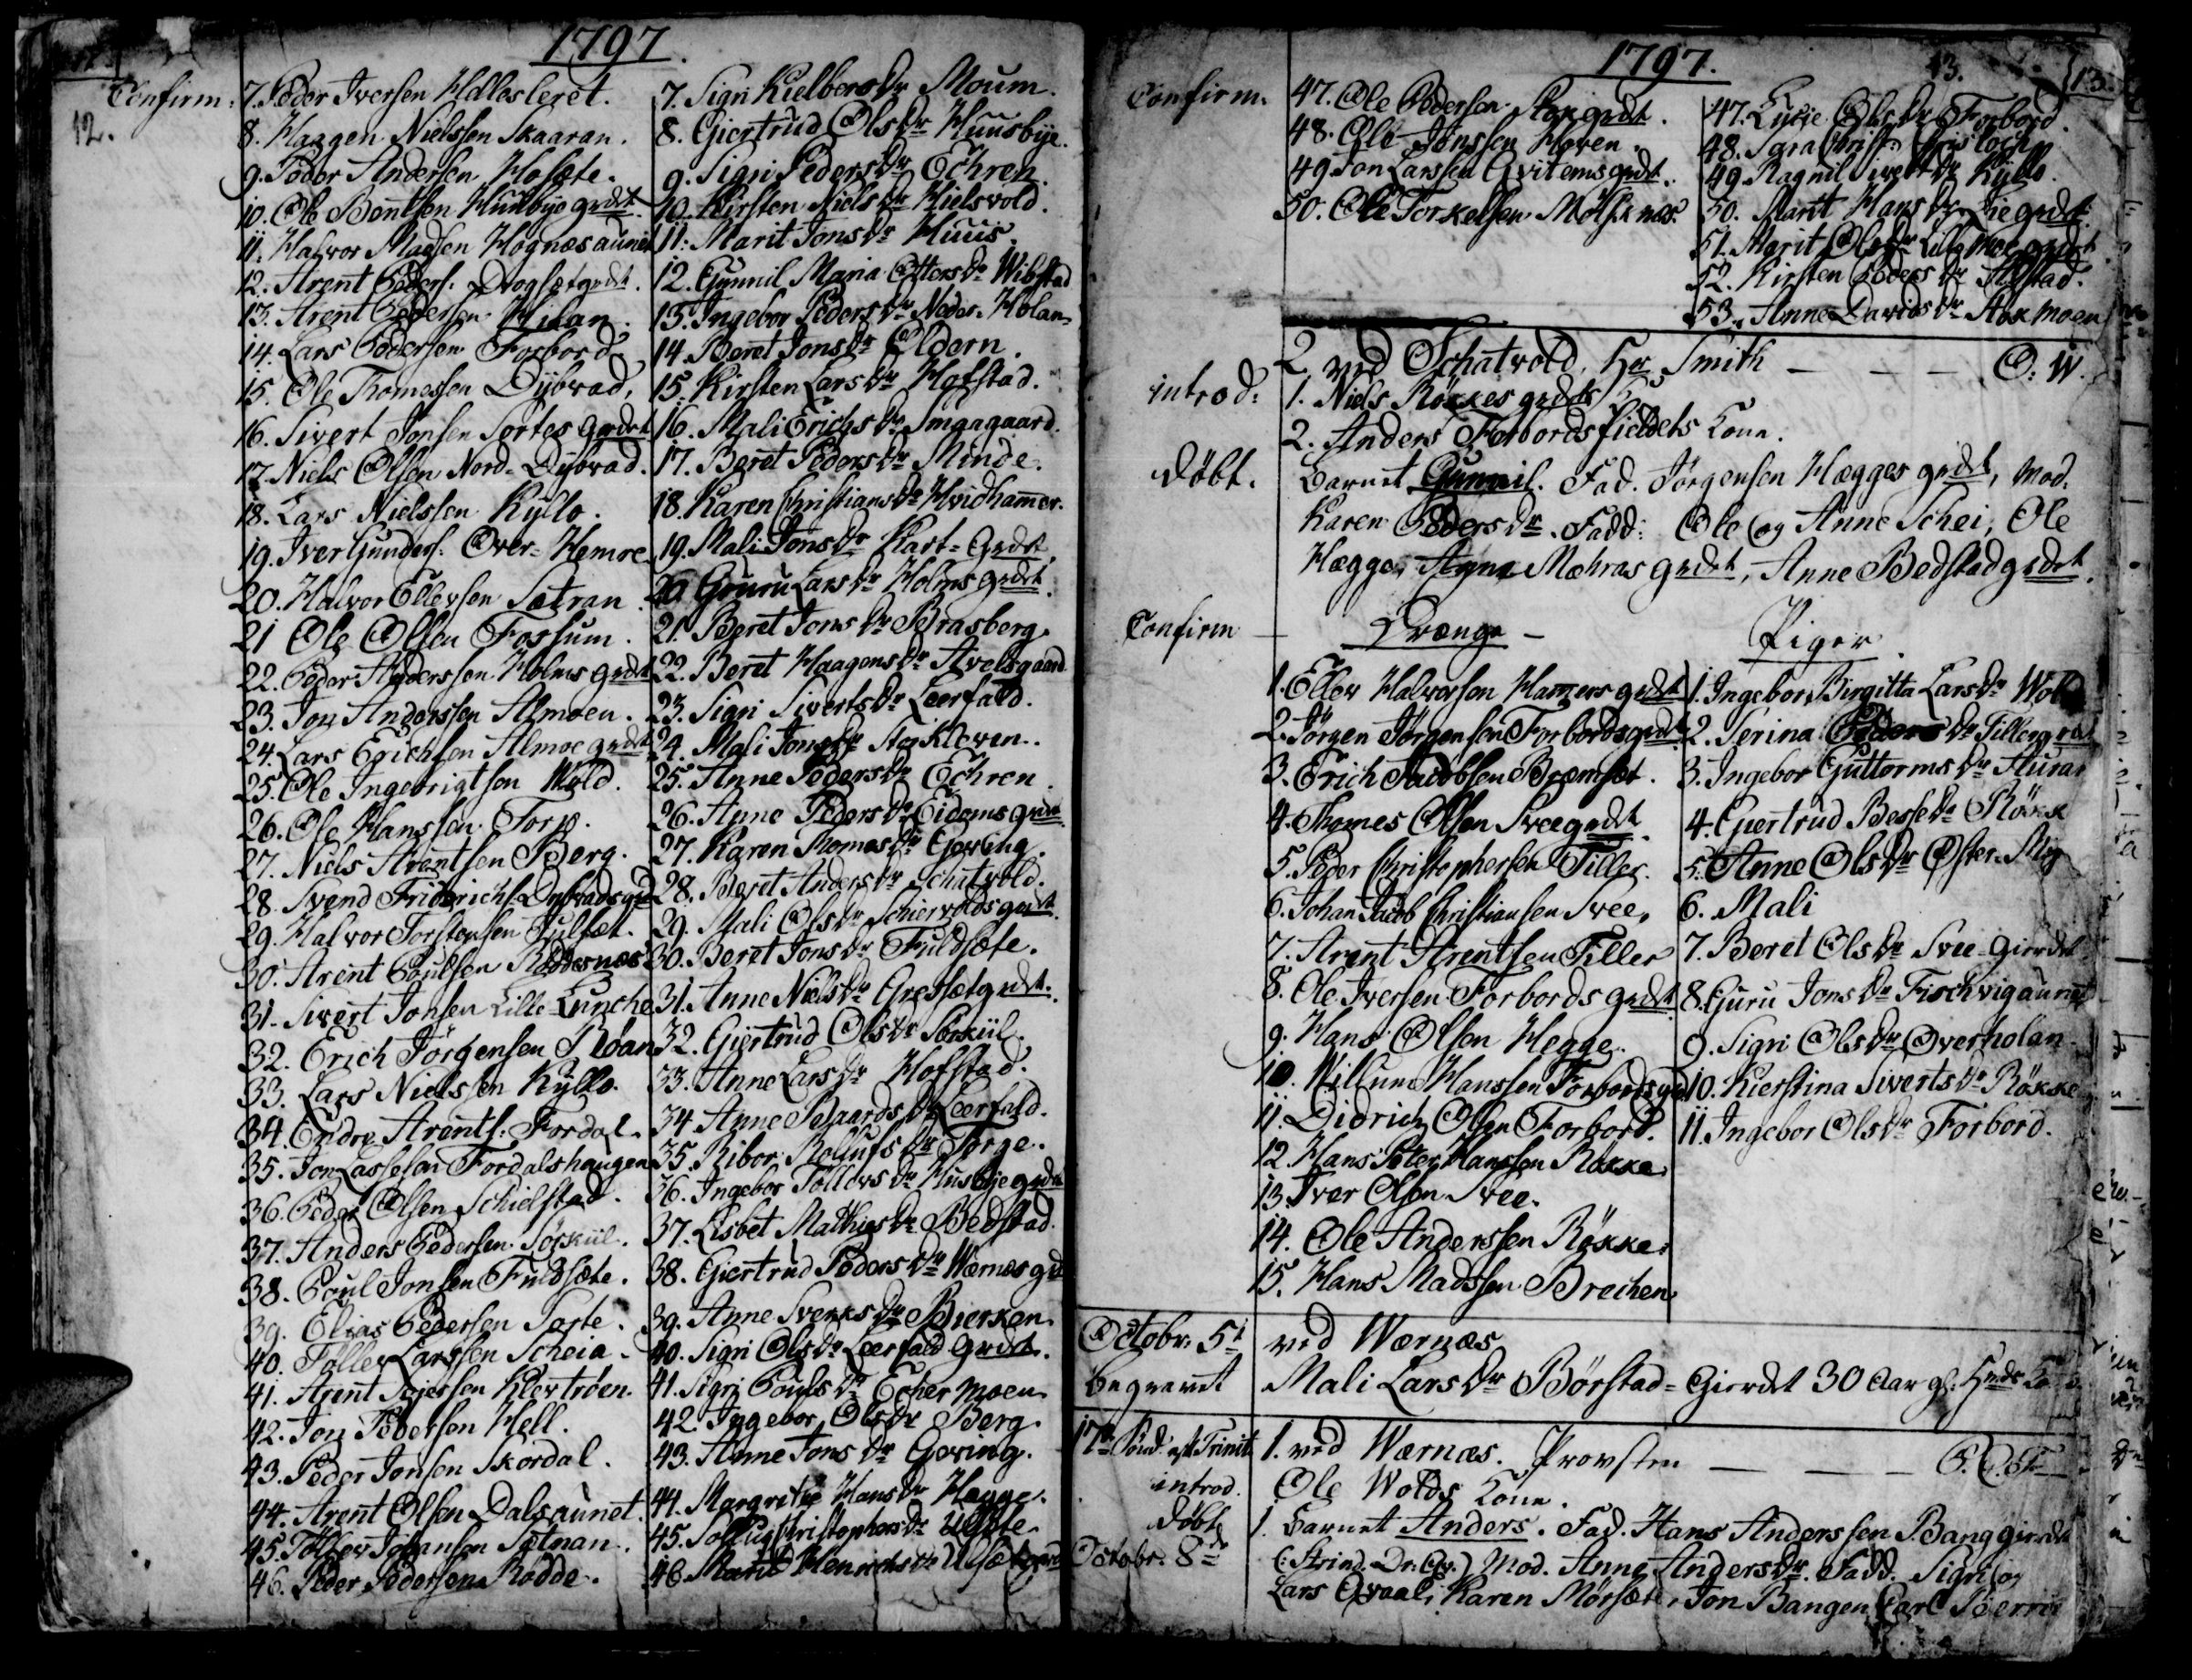 1797.
12.
Confirm:
7. Peder Iversen Hælesleret.
8. Haagen Nielssen Skaaran.
9. Peder Andersen Hofsæte.
10. Ole Bentsen Husbyegrdet
11. Halvor Madsen Hognæsaunet
12. Arent Peders: Dragsætgrdt.
13. Arent Pedersen Hilan.
14. Lars Pedersen Forbord
15. Ole Thomessen Dybvad,
16. Sivert Jonsen Sortes grdet
17. Niels Olsen Nord-Dybvad.
18. Lars Nielssen Kyllo.
19. Iver Gunders: Over-Hemre
20. Halvor Ellevsen Sætran.
21 Ole Olsen Forsum.
22. Peder Anderssen Holms grdet
23. Jon Anderssen Almoen.
24. Lars Erichsen Almoe grdet
25. Ole Ingebrigtsen Wold.
26. Ole Hanssen Torp.
27. Niels Arentsen Berg.
28. Svend Friderichs: Dybvads grd
29. Halvor Torstensen Julset.
30. Arent Poulsen Roddesnæs
31. Sivert Jonsen Lille-Lunche
32. Erich Jørgensen Røan
33. Lars Nielssen Kyllo.
34. Endre Arents: Fordal.
35. Jon Lassesen Fordalshaugen
36. Peder Olsen Schielstad.
37. Anders Pedersen Sørkiil.
38. Poul Jonsen Fuldsæte.
39. Elias Pedersen Sorte.
40. Tøller Larssen Scheia.
41. Arent Sejersen Klevtrøen.
42. Jon Pedersen Hell.
43. Peder Jonsen Skordal.
44. Arent Olsen Dalsaunet.
45. Tøllev Johansen Sætnan.
46. Peder Pedersen Rodde.
7. Sigri Kielbersdr Moum.
8. Giertrud Olsdr Huusbye.
9. Sigri Pedersdr Echren.
10. Kirsten Nielsdr Hielsvold.
11. Marit Jonsdr Huus.
12. Gunnil Maria Ottersdr Wibstad
13. Ingebor Pedersdr Neder-Holan
14. Beret Jonsdr Oldern.
15. Kirsten Larsdr Hofstad.
16. Mali Erichsdr Smaagaard.
17. Beret Pedersdr Minde.
18. Karen Christiansdr Hvidhamer.
19. Mali Jonsdr Kart-Grdet
20 Gruru Larsdr Holms grdet.
21. Beret Jonsdr Brasberg.
22. Beret Haagensdr Avelsgaard
23. Sigri Sivertsdr Leerfald.
24. Mali Jonsdr Storkleven.
25. Anne Pedersdr Echren.
26. Anne Pedersdr Eidems grdet
27. Karen Thomasdr Gewing.
28. Beret Andersdr Schatvold.
29. Mali Olsdr Schiervoldsgrdet.
30. Beret Jonsdr Fuldsæte.
31. Anne Nielsdr Gresset grdt.
32. Giertrud Olsdr Sørkiil.
33. Anne Larsdr Hofstad.
34 Anne Baardsdr Leerfald.
35. Ribor Rollufsdr Torge.
36. Ingebor Tøllevsdr Husbye grdet
37. Lisbet Mathiesdr Bedstad.
38. Giertrud Pedersdr Wærnes grd
39. Anne Sverksdr Bierken.
40. Sigri Olsdr Leerfald grdet.
41. Sigri Poulsdr Echermoen
42. Ingebor Olsdr Berg.
43. Anne Jonsdr Gewing.
44. Margrete Hansdr Hegge.
45. Sollug Christophersdr Ulsæte.
46. Marit Henrichsdr Ulsæt grd
1797.
13.
13.
Confirm.
47. Ole Pedersen grdt.
48. Ole Jonssen Haven.
49 Jon Larssen Qvitems grdt.
50. Ole Torkelsen Molsknæs.
47. Lucie Olsdr Forbord.
48. Sara
49. Ragnil Sivertdr Kyllo.
50. Marit Hansdr grdt.
51. Marit Olsdr Lille Moe grdet
52. Kirsten Pedersdr Alstad.
53. Anne Davidsdr Aasmoen
2 ved Schatvold, Hr Smith — — — O: W.
introd:
1. Niels Røkkes grdets K:
2. Anders Forbordsfieldets Kone.
Døbt.
Barnet Gunnil. Fad. Jørgensen Hægges grdet, Mod.
Karen Pedersdr. Fadd: Ole og Anne Schei, Ole
Hægge, Anne Mæhras grdet, Anne Bedstad grdet.
Confirm —
Drænge —
Piger.
1. Ellev Halvorsen Hamers grdet
2. Jørgen Jørgensen Forbords grdet
3. Erich Jacobsen Bremset.
4. Thomes Olsen Svee grdet.
5. Peder Christophersen Tiller.
6. Johan Jacob Christiansen Svee,
7. Arent Arentsen Tiller
8. Ole Iversen Forbords grdet
9. Hans Olsen Hegge.
10. Willum Hanssen Forbords grd
11. Didrich Olsen Forbord.
12. Hans Peter Hanssen Røkke
13 Iver Olsen Svee.
14. Ole Anderssen Røkke.
15. Hans Madssen Brechen
1. Ingebor Birgitta Larsdr Wold
2. Serina Pedersdr Tillergrd
3. Ingebor Guttormsdr Aturas
4. Giertrud Bersedr Røkke
5. Anne Olsdr Øster-My
6. Mali
7. Beret Olsdr Svee-Gierdet
8. Guru Jonsdr Fischvigaunet
9. Sigri Olsdr Overholan
10. Kierstina Sivertsdr Røkke
11. Ingebor Olsdr Forbord.
Octobr. 5t
ved Wærnæs
begravet
Mali Larsdr Børstad-Gierdet 30 Aar gl:
17de Sønd. eft Trinit.
1. ved Wærnæs. Provsten — — —
introd.
Ole Wolds Kone.
Døbt
1. Barnet Anders. Fad. Hans Anderssen Bang gierdet
Octobr. 8de
(: Strind. Dr: Qv.) Mod. Anne Andersdr. Fadd. Sigri og
Lars Qvaal, Karen Mørsæt, Jon Bangen